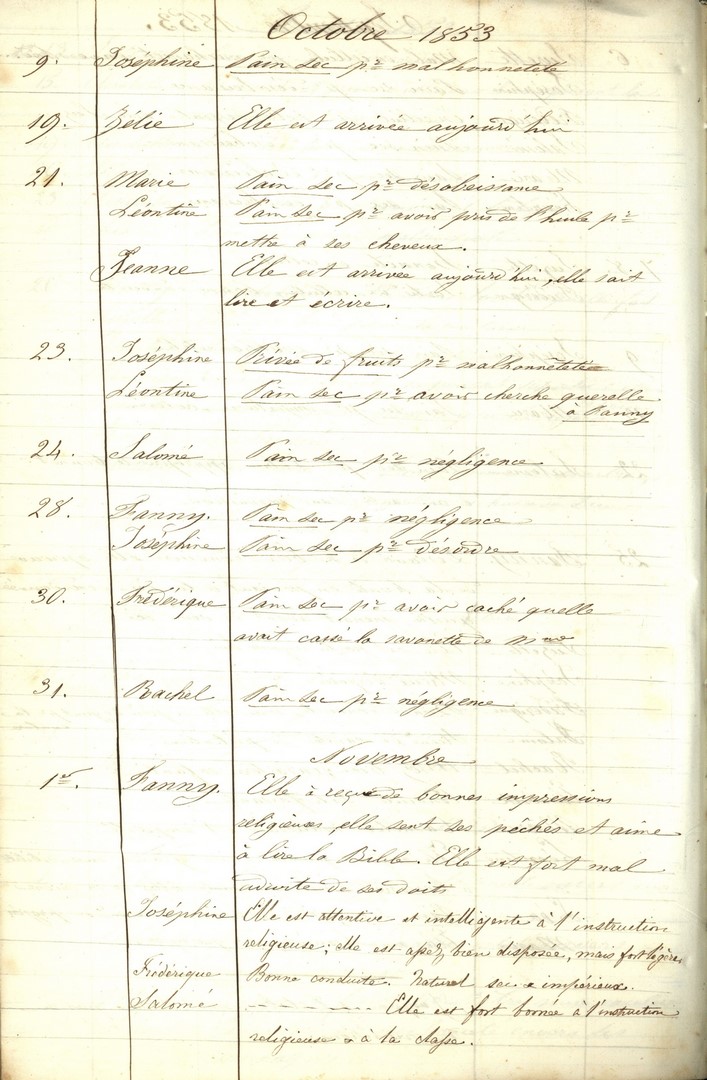 Octobre 1853
9. Joséphine Pain sec pr malhonneteté
19. Zélie Elle est arrivée aujourd'hui
21. Marie Pain sec pr désobeissance
Léontine Pain sec pr avoir pris de l'huile pr
mettre à ses cheveux.
Jeanne Elle est arrivée aujourd'hui, elle sait
lire et écrire.
23. Joséphine Privée de fruits pr malhonnêteté
Léontine Pain sec pr avoir cherche querelle
à Fanny
24. Salomé Pain sec pr négligence
28. Fanny. Pain sec pr négligence
Joséphine Pain sec pr désordre
30. Frédérique Pain sec pr avoir caché quelle
avait cassé la savonette de Mme
31. Rachel Pain sec pr négligence
Novembre
1er. Fanny. Elle à reçue de bonnes impressions
religieuses, elle sent ses péchés et aime
à lire la Bible. Elle est fort mal
adroite de ses doits
Joséphine Elle est attentive et intelligente à l'instruction
religieuse; elle est assez bien disposée, mais fort légère.
Frédérique Bonne conduite. Naturel sec & impérieux.
Salomé - - - - - - - - Elle est fort bornée à l'instruction
religieuse & à la classe.